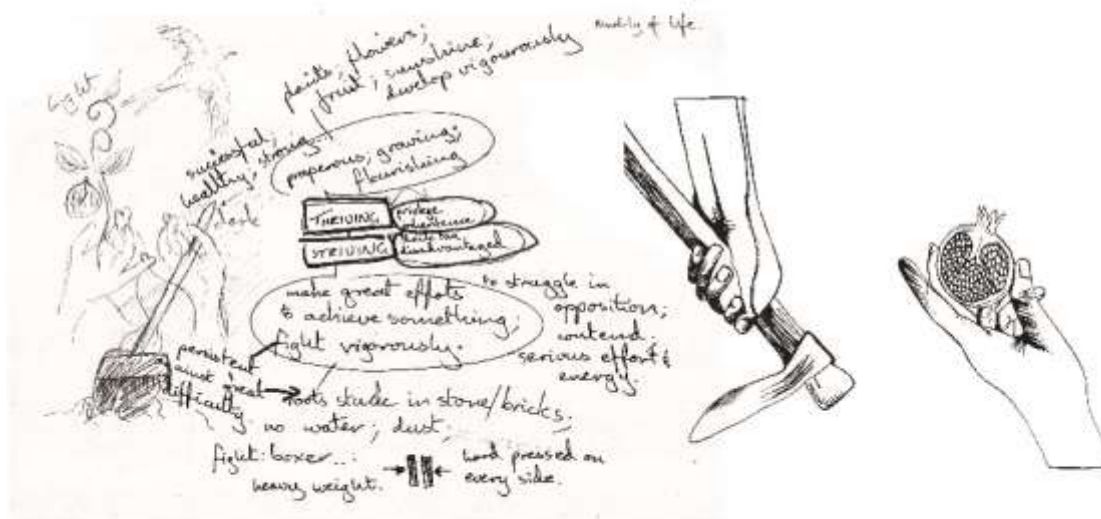 light
plants, flowers;
fruit; sunshine;
develop vigourously
of life.
successful,
healthy, strong..!
prosperous; growing;
flourishing
THRIVING
STRIVING
disadvantaged
make great effots
to achieve something;
fight vigorously.
to struggle in
opposition;
contend,
serious effort &
energy.
persistent
great
difficulty
roots stuck in stone/bricks,
no water; dust;
fight: boxer...:
heavy weight.
hard pressed on
every side.